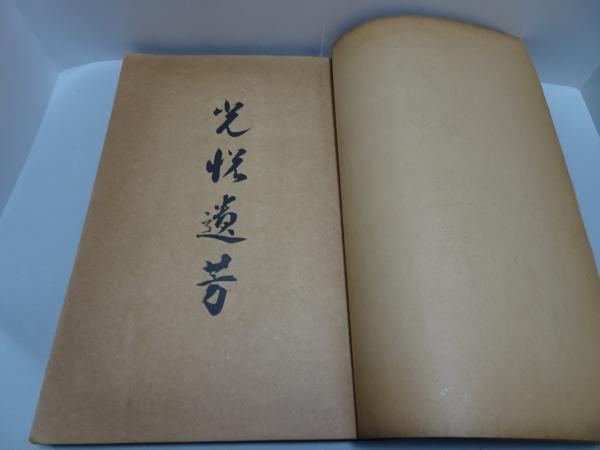 光悦遺芳